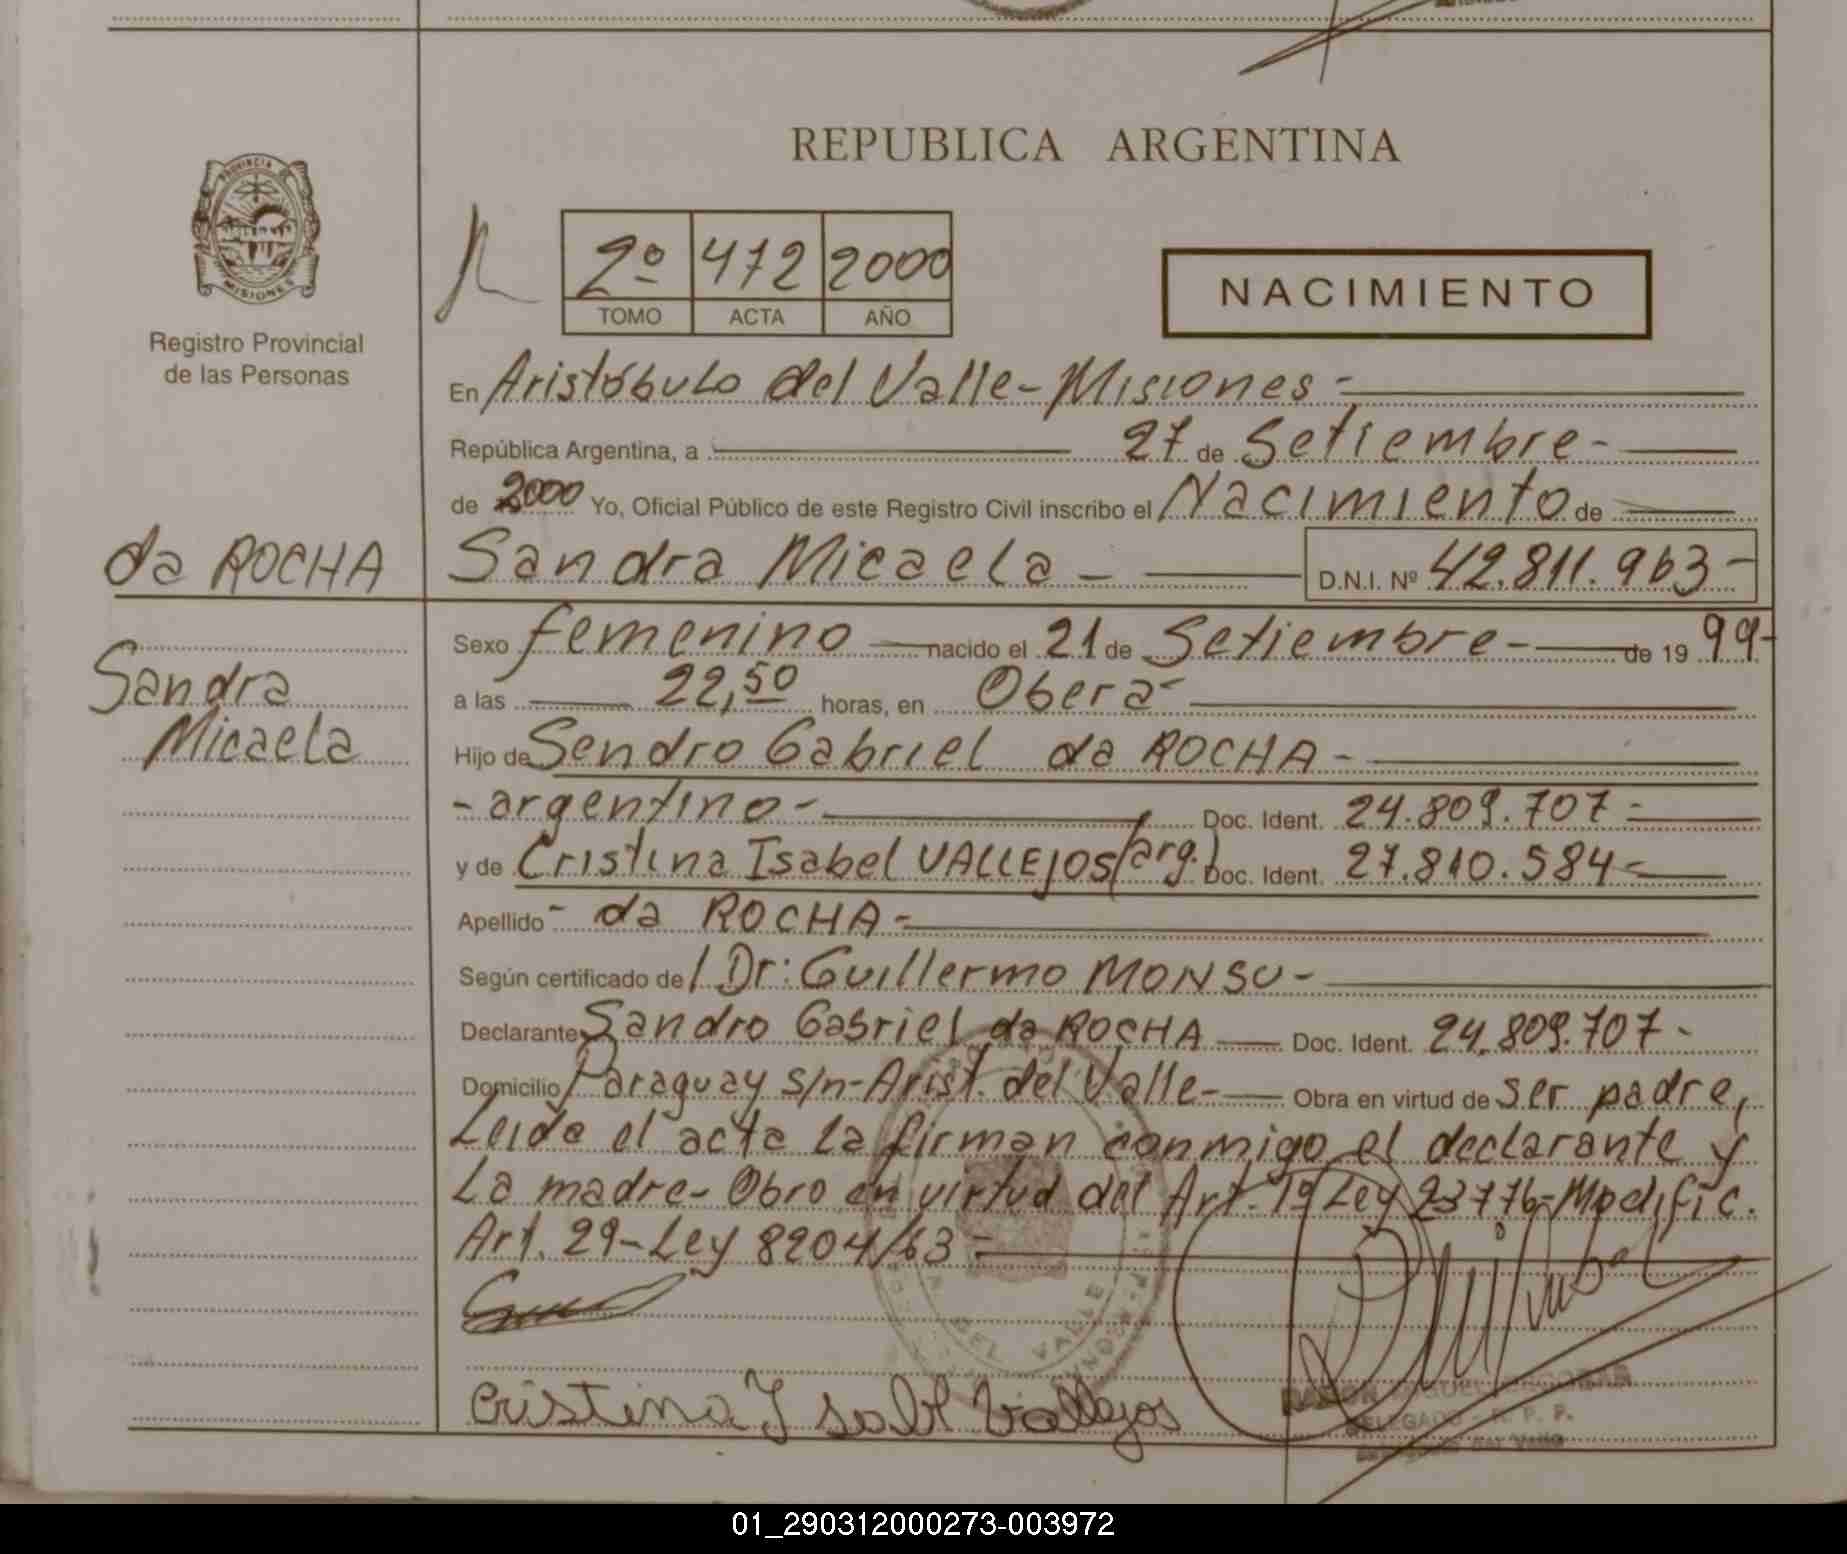 REPUBLICA ARGENTINA
PROVINCIA DE
MISIONES
Registro Provincial
de las Personas
2º 472 2000
TOMO ACTA AÑO
NACIMIENTO
En Aristóbulo del Valle - Misiones -
República Argentina, a 27 de Setiembre -
de 2000 Yo, Oficial Público de este Registro Civil inscribo el Nacimiento de
da ROCHA
Sandra Micaela - D.N.I. Nº 42.811.963 -
Sandra
Micaela
Sexo femenino nacido el 21 de Setiembre - de 19 99 -
a las 22,50 horas, en Oberá -
Hijo de Sendro Gabriel da ROCHA -
- argentino - Doc. Ident. 24.809.707 -
y de Cristina Isabel VALLEJOS (arg.) Doc. Ident. 27.810.584 -
Apellido - da ROCHA -
Según certificado de l Dr: Guillermo MONSU -
Declarante Sandro Gabriel da ROCHA Doc. Ident. 24.809.707 -
Domicilio Paraguay s/n - Arist. del Valle - Obra en virtud de ser padre,
Leida el acta la firman conmigo el declarante y
La madre - Obro en virtud del Art. 1º Ley 23776 - Modific.
Art. 29 - Ley 8204/63 -
DEL VALLE
Cristina Isabl Vallejos
RAMON MIGUEL ESCOBAR
DELEGADO - R. P. P.
del Valle
01_290312000273-003972